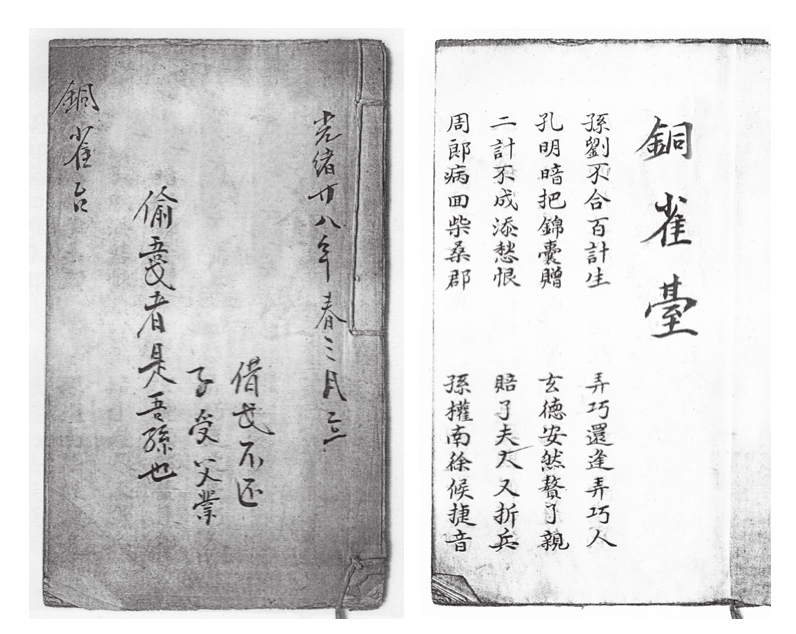 光緒廿八年春三月立
借不还
子受父業
偷者是吾孫也
銅雀台
銅雀臺
孫劉不合百計生 弄巧還逢弄巧人
孔明暗把錦囊贈 玄德安然贅了親
二計不成添愁恨 賠了夫人又折兵
周郎病囬柴桑郡 孫權南徐候捷音